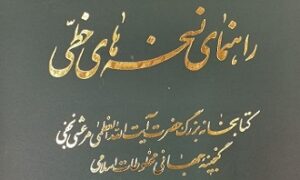 راهنمای نسخه های خطی
کتابخانه بزرگ حضرت آیت الله العظمی مرعشی نجفی
گنجینه جهانی مخطوطات اسلامی